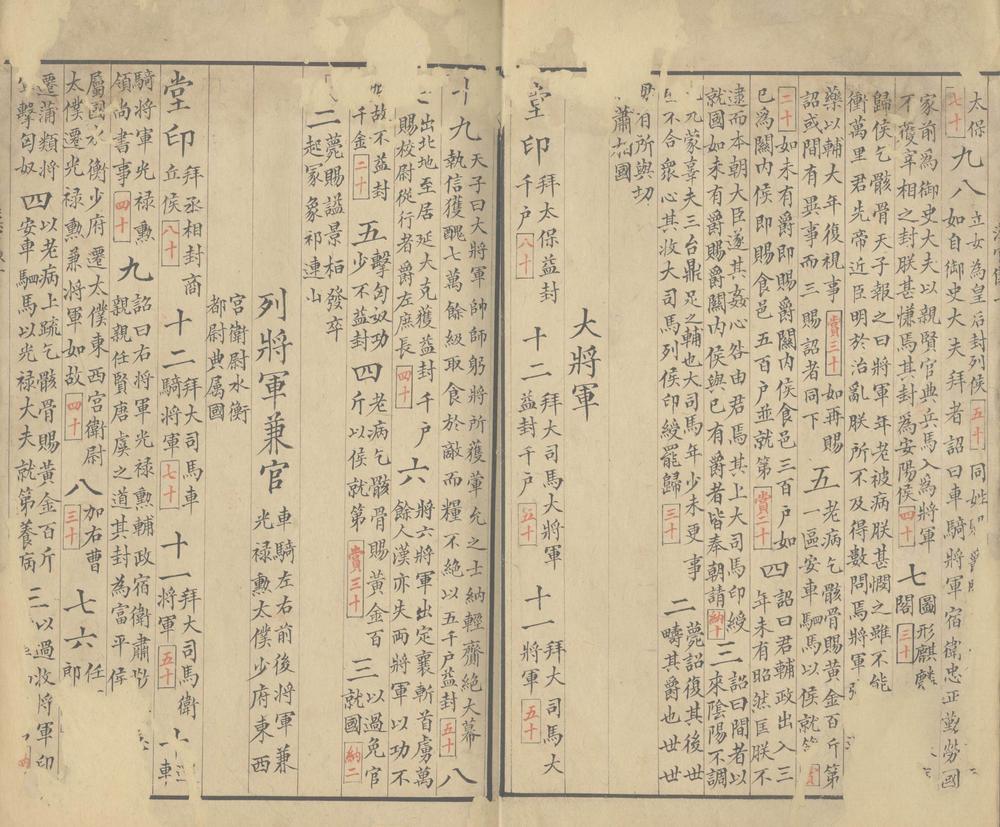 太保
七十
九八
立女為皇后封列侯 五十 同姓
如自御史大夫拜者詔曰車騎將軍宿衛忠正勤勞國
家前為御史大夫以親賢官典兵馬入為將軍
不獲宰相之封朕甚慊焉其封為安陽侯 四十
七 圖形麒麟
閣 三十
歸侯乞骸骨天子報之曰將軍年老被病朕甚憫之雖不能
衝萬里君先帝近臣明於治亂朕所不及得數問焉將軍
藥以輔大年復視事 賞三十 如再賜
詔或間有異事而三賜詔者同下
五 老病乞骸骨賜黃金百斤第
一區安車駟馬以侯就
二十 如未有爵即賜爵關內侯食邑三百戶如
已為關內侯即賜食邑五百戶並就第 賞二十
四 詔曰君輔政出入三
年未有昭然匡朕不
逮而本朝大臣遂其姦心咎由君焉其上大司馬印綬
就國如未有爵賜爵關內侯與已有爵者皆奉朝請 納十
三 詔曰間者以
來陰陽不調
元蒙喜夫三台鼎足之輔也大司馬年少未更事
不合眾心其收大司馬列侯印綬罷歸 三十
二 薨詔復其後世
疇其爵也世世
有所與功
蕭相國
大將軍
堂印 拜太保益封
千戶 八十
十二 拜大司馬大將軍
益封千戶 五十
十一 拜大司馬大
將軍 五十
十九 天子曰大將軍帥師躬將所獲葷允之士納輕齎絕大幕
執信獲醜七萬餘級取食於敵而糧不絕以五千戶益封 五十
八
出北地至居延大克獲益封千戶
賜校尉從行者爵左庶長 四十
六 將六將軍出定襄斬首虜萬
餘人漢亦失兩將軍以功不
故不益封
千金 二十
五 擊匈奴功
少不益封
四 老病乞骸骨賜黃金百
斤以侯就第 賞三十
三 以過免官
就國 納二
二 薨賜謚景桓發卒
起冢象祁連山
列將軍兼官
車騎左右前後將軍兼
光祿勳太僕少府東西
宮衛尉水衡
都尉典屬國
堂印 拜丞相封商
丘侯 八十
十二 拜大司馬車
騎將軍 七十
十一 拜大司馬衛
將軍 五十
十 車
騎將軍光祿勳
領尚書事 四十
九 詔曰右將軍光祿勳輔政宿衛肅
親親任賢唐虞之道其封為富平侯
屬國水衡少府遷太僕東西宮衛尉
太僕遷光祿勳兼將軍如故 四十
八 加右曹
三十
七六 任
郎
遷蒲類將
擊匈奴
四 以老病上疏乞骸骨賜黃金百斤
安車駟馬以光祿大夫就第養病
三 以過收將軍印